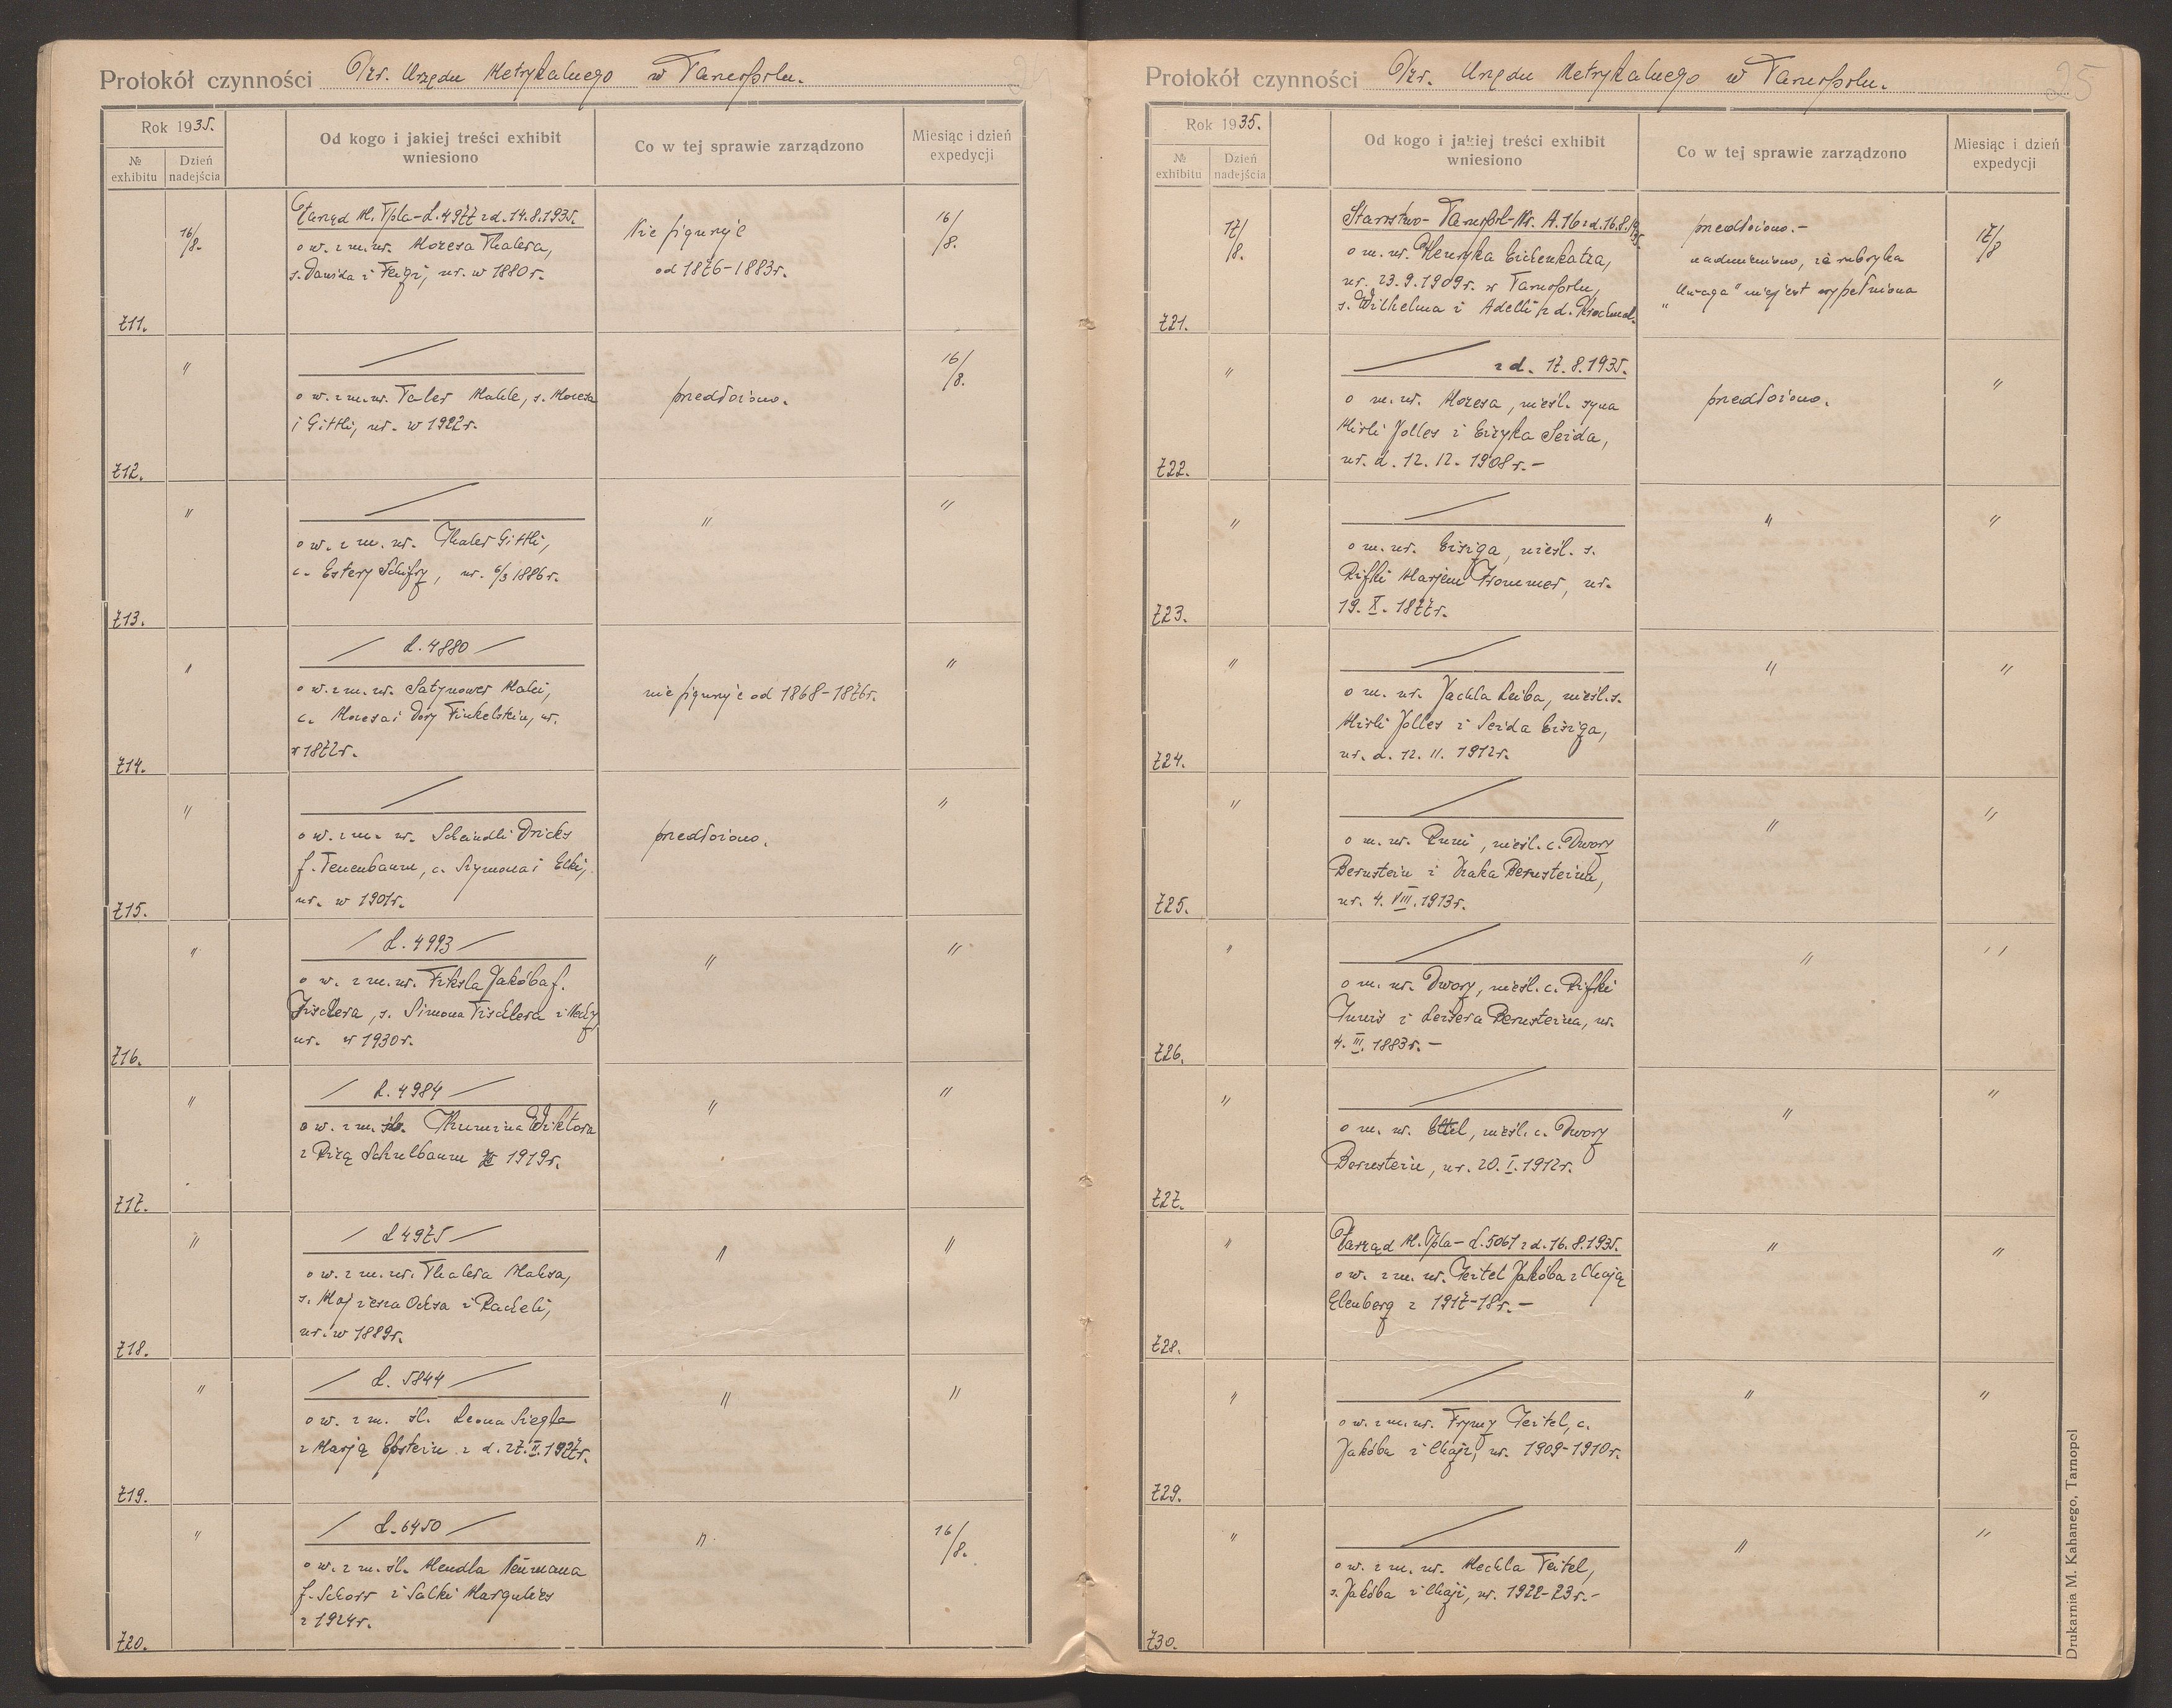 Protokół czynności Izr. Urzędu Metrykalnego w Tarnopolu.
Rok 1935.
№ exhibitu
Dzień nadejścia
Od kogo i jakiej treści exhibit wniesiono
Co w tej sprawie zarządzono
Miesiąc i dzień expedycji
Zarząd M. Tpla - L. 4977 z d. 14.8.1935.
16/8.
o w. z m. ur. Mozesa Thalera,
s. Dawida i Feigi, ur. w 1880 r.
Nie figuruje
od 1876-1883 r.
16/8.
711.
"
o w. z m. ur. Taler Malile, s. Mozesa
i Gittli, ur. w 1922 r.
przedłożono.
16/8.
712.
"
o w. z m. ur. Thaler Gittli,
c. Estery Schifry, ur. 6/3 1886 r.
"
"
713.
L. 4880
"
o w. z m. ur. Satynower Malci,
c. Mozesa i Dory Finkelstein, ur.
w 1872 r.
nie figuruje od 1868-1876 r.
"
714.
"
o w. z m. ur. Scheindli Dricks
f. Tenenbaum, c. Szymona i Elki,
ur. w 1901 r.
przedłożono.
"
715.
L. 4993
"
o w. z m. ur. Fiksla Jakóba f.
Fischlera, s. Simona Fischlera i
ur. w 1930 r.
"
"
716.
L. 4984
"
o w. z m. śl. Thumina Wiktora
z Rizą Schulbaum z 1919 r.
"
"
717.
L 4975
"
o w. z m. ur. Thalera Maksa,
s. Mojżesza Ochsa i Racheli,
ur. w 1889 r.
"
"
718.
L. 5844
"
o w. z m. śl. Leona Siegla
z Marją Epstein z d. 27.II.1927 r.
"
"
719.
L. 6450
"
o w. z m. śl. Mendla Neumana
f. Schorr i Salki Margulies
z 1924 r.
"
16/8.
720.
Protokół czynności Izr. Urzędu Metrykalnego w Tarnopolu.
25
Rok 1935.
№ exhibitu
Dzień nadejścia
Od kogo i jakiej treści exhibit wniesiono
Co w tej sprawie zarządzono
Miesiąc i dzień expedycji
Starostwo - Tarnopol - Nr. A. 16 z d. 16.8.1935.
17/8.
o m. ur. Henryka Eichenkatza,
ur. 23.9.1909 r. w Tarnopolu,
s. Wilhelma i Adelli z d. Krochmal.
przedłożono.-
nadmieniono, że rubryka
"Uwaga" nie jest wypełniona
17/8
721.
z d. 17.8.1935.
"
o m. ur. Mozesa, nieśl. syna
Mirli Jolles i Eizyka Seida,
ur. d. 12.12.1908 r.-
przedłożono.
"
722.
"
o m. ur. Eisiga, nieśl. s.
Rifki Marjem Frommer, ur.
19.X.1877 r.
"
"
723.
"
o m. ur. Jachla Leiba, nieśl. s.
Mirli Jolles i Seida Eisiga,
ur. d. 12.11.1912 r.
"
"
724.
"
o m. ur. Runi, nieśl. c. Dwory
Bernstein i Izaka Bernsteina,
ur. 4.VIII.1913 r.
"
"
725.
"
o m. ur. Dwory, nieśl. c. Rifki
i Leisera Bernsteina, ur.
4.III.1883 r.-
"
"
726.
"
o m. ur. Ettel, nieśl. c. Dwory
Bernstein, ur. 20.I.1912 r.
"
"
727.
Zarząd M. Tpla - L. 5061 z d. 16.8.1935.
"
o w. z m. ur. Teitel Jakóba z Chają
Elenberg z 1917-18 r.-
"
"
728.
"
o w. z m. ur. Frymy Teitel, c.
Jakóba i Chaji, ur. 1909-1910 r.
"
"
729.
"
o w. z m. ur. Mechla Teitel,
s. Jakóba i Chaji, ur. 1922-23 r.-
"
"
730.
Drukarnia M. Kahanego, Tarnopol